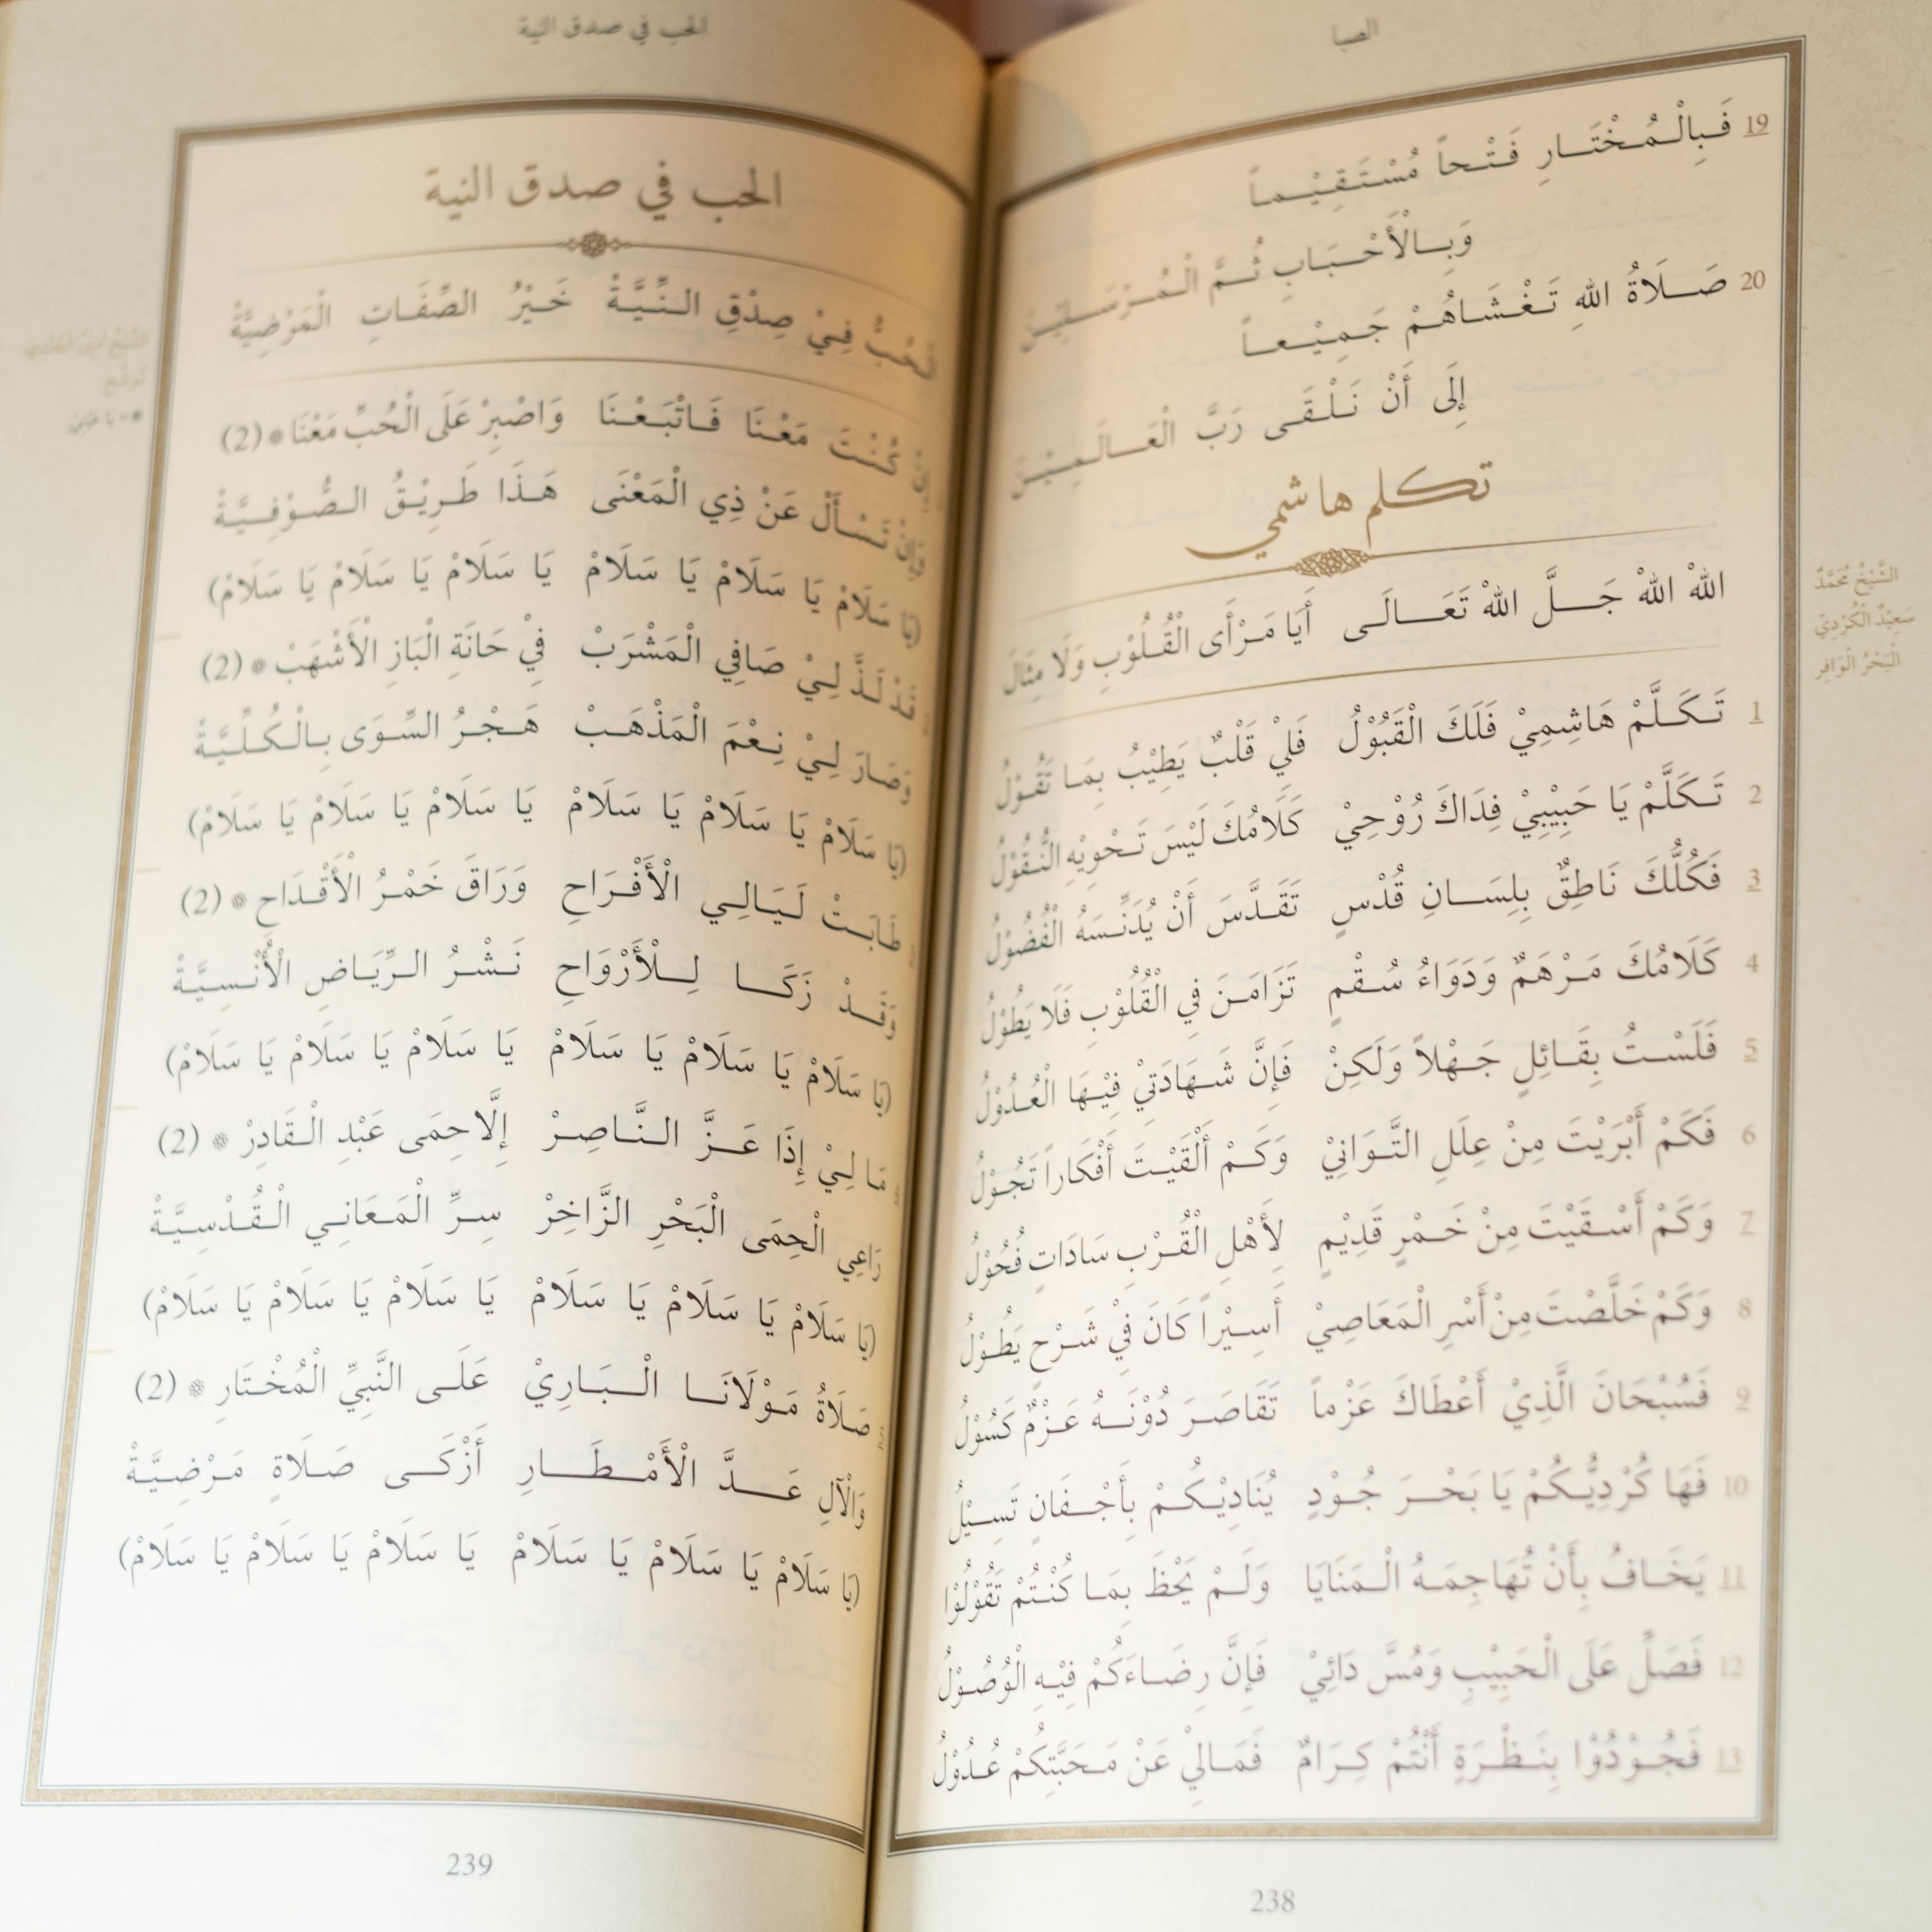 الصبا
19 فَبِالْمُخْتَارِ فَتْحاً مُسْتَقِيْماً
وَبِالْأَحْبَابِ ثُمَّ الْمُرْسَلِيْنَ
20 صَلَاةُ اللهِ تَغْشَاهُمْ جَمِيْعاً
إِلَى أَنْ نَلْقَى رَبَّ الْعَالَمِيْنَ
تكلم هاشمي
اللهْ اللهْ جَلَّ اللهْ تَعَالَى أَيَا مَرْأَى الْقُلُوْبِ وَلَا مِثَالَ
الشَّيْخُ مُحَمَّدٌ
سَعِيْدٌ الْكُرْدِيّ
الْبَحْرُ الْوَافِر
1 تَكَلَّمْ هَاشِمِيْ فَلَكَ الْقَبُوْلُ فَلِيْ قَلْبٌ يَطِيْبُ بِمَا تَقُوْلُ
2 تَكَلَّمْ يَا حَبِيْبِيْ فِدَاكَ رُوْحِيْ كَلَامُكَ لَيْسَ تَحْوِيْهِ النُّقُوْلُ
3 فَكُلُّكَ نَاطِقٌ بِلِسَانِ قُدْسٍ تَقَدَّسَ أَنْ يُدَنِّسَهُ الْفُضُوْلُ
4 كَلَامُكَ مَرْهَمٌ وَدَوَاءُ سُقْمٍ تَزَامَنَ فِي الْقُلُوْبِ فَلَا يَطُوْلُ
5 فَلَسْتُ بِقَائِلٍ جَهْلاً وَلَكِنْ فَإِنَّ شَهَادَتِيْ فِيْهَا الْعُدُوْلُ
6 فَكَمْ أَبْرَيْتَ مِنْ عِلَلِ التَّوَانِيْ وَكَمْ أَلْقَيْتَ أَفْكَاراً تَجُوْلُ
7 وَكَمْ أَسْقَيْتَ مِنْ خَمْرٍ قَدِيْمٍ لِأَهْلِ الْقُرْبِ سَادَاتٍ فُحُوْلُ
8 وَكَمْ خَلَّصْتَ مِنْ أَسْرِ الْمَعَاصِيْ أَسِيْراً كَانَ فِيْ شَرْحٍ يَطُوْلُ
9 فَسُبْحَانَ الَّذِيْ أَعْطَاكَ عَزْماً تَقَاصَرَ دُوْنَهُ عَزْمٌ كَسُوْلُ
10 فَهَا كُرْدِيُّكُمْ يَا بَحْرَ جُوْدٍ يُنَادِيْكُمْ بِأَجْفَانٍ تَسِيْلُ
11 يَخَافُ بِأَنْ تُهَاجِمَهُ الْمَنَايَا وَلَمْ يَحْظَ بِمَا كُنْتُمْ تَقُوْلُوْا
12 فَصَلِّ عَلَى الْحَبِيْبِ وَمُسَّ دَائِيْ فَإِنَّ رِضَاءَكُمْ فِيْهِ الْوُصُوْلُ
13 فَجُوْدُوْا بِنَظْرَةٍ أَنْتُمْ كِرَامٌ فَمَالِيْ عَنْ مَحَبَّتِكُمْ عُدُوْلُ
238
الحب في صدق النية
الحب في صدق النية
الْحُبُّ فِيْ صِدْقِ النِّيَّةْ خَيْرُ الصِّفَاتِ الْمَرْضِيَّةْ
كُنْتَ مَعْنَا فَاتْبَعْنَا وَاصْبِرْ عَلَى الْحُبِّ مَعْنَا * (2)
تَسْأَلْ عَنْ ذِي الْمَعْنَى هَذَا طَرِيْقُ الصُّوْفِيَّةْ
(يَا سَلَامْ يَا سَلَامْ يَا سَلَامْ يَا سَلَامْ يَا سَلَامْ يَا سَلَامْ)
قَدْ لَذَّ لِيْ صَافِي الْمَشْرَبْ فِيْ حَانَةِ الْبَازِ الْأَشْهَبْ * (2)
وَصَارَ لِيْ نِعْمَ الْمَذْهَبْ هَجْرُ السِّوَى بِالْكُلِّيَّةْ
(يَا سَلَامْ يَا سَلَامْ يَا سَلَامْ يَا سَلَامْ يَا سَلَامْ يَا سَلَامْ)
طَابَتْ لَيَالِي الْأَفْرَاحِ وَرَاقَ خَمْرُ الْأَقْدَاحِ * (2)
وَقَدْ زَكَا لِلْأَرْوَاحِ نَشْرُ الرِّيَاضِ الْأُنْسِيَّةْ
(يَا سَلَامْ يَا سَلَامْ يَا سَلَامْ يَا سَلَامْ يَا سَلَامْ يَا سَلَامْ)
مَا لِيْ إِذَا عَزَّ النَّاصِرْ إِلَّا حِمَى عَبْدِ الْقَادِرْ * (2)
رَاعِي الْحِمَى الْبَحْرِ الزَّاخِرْ سِرِّ الْمَعَانِي الْقُدْسِيَّةْ
(يَا سَلَامْ يَا سَلَامْ يَا سَلَامْ يَا سَلَامْ يَا سَلَامْ يَا سَلَامْ)
صَلَاةُ مَوْلَانَا الْبَارِيْ عَلَى النَّبِيِّ الْمُخْتَارِ * (2)
وَالْآلِ عَدَّ الْأَمْطَارِ أَزْكَى صَلَاةٍ مَرْضِيَّةْ
(يَا سَلَامْ يَا سَلَامْ يَا سَلَامْ يَا سَلَامْ يَا سَلَامْ يَا سَلَامْ)
239